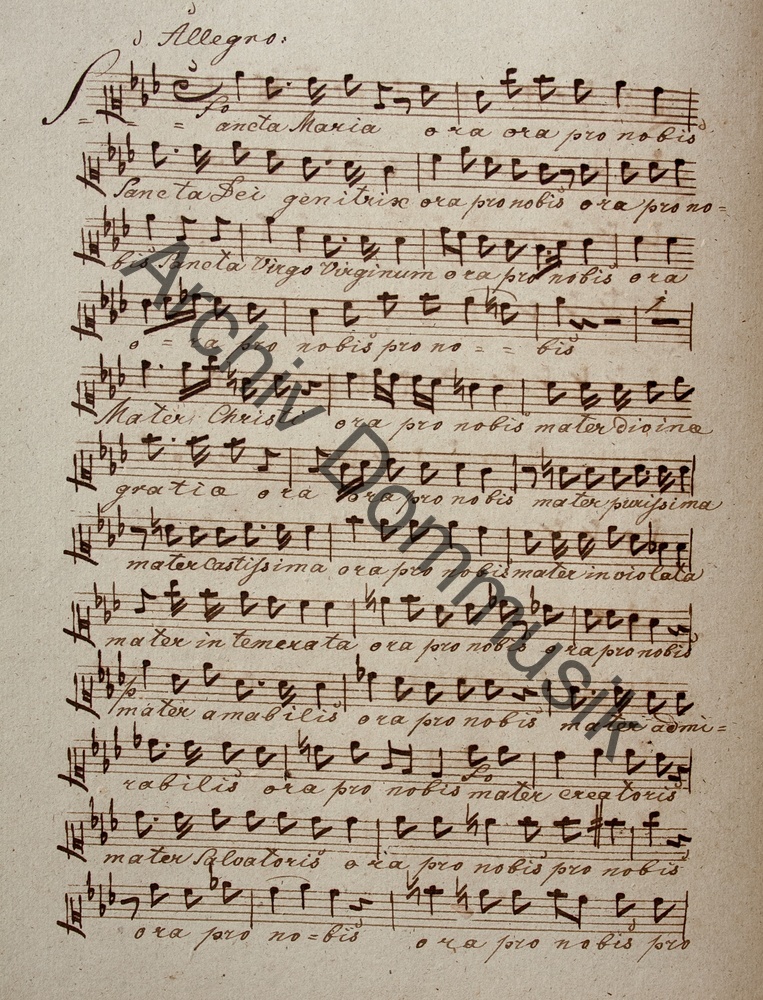 Allegro:
Sancta Maria ora ora pro nobis
Sancta Dei genitrix ora pro nobis ora pro no=
bis Sancta Virgo Virginum ora pro nobis ora
o = ra pro nobis pro no = = bis
Mater Christi ora pro nobis mater divinæ
gratiæ ora ora pro nobis mater purissima
mater castissima ora pro nobis mater inviolata
mater intemerata ora pro nobis ora pro nobis
mater amabilis ora pro nobis mater admi=
rabilis ora pro nobis mater creatoris
mater Salvatoris ora pro nobis pro nobis
ora pro no=bis ora pro nobis pro
Archiv Dommusik